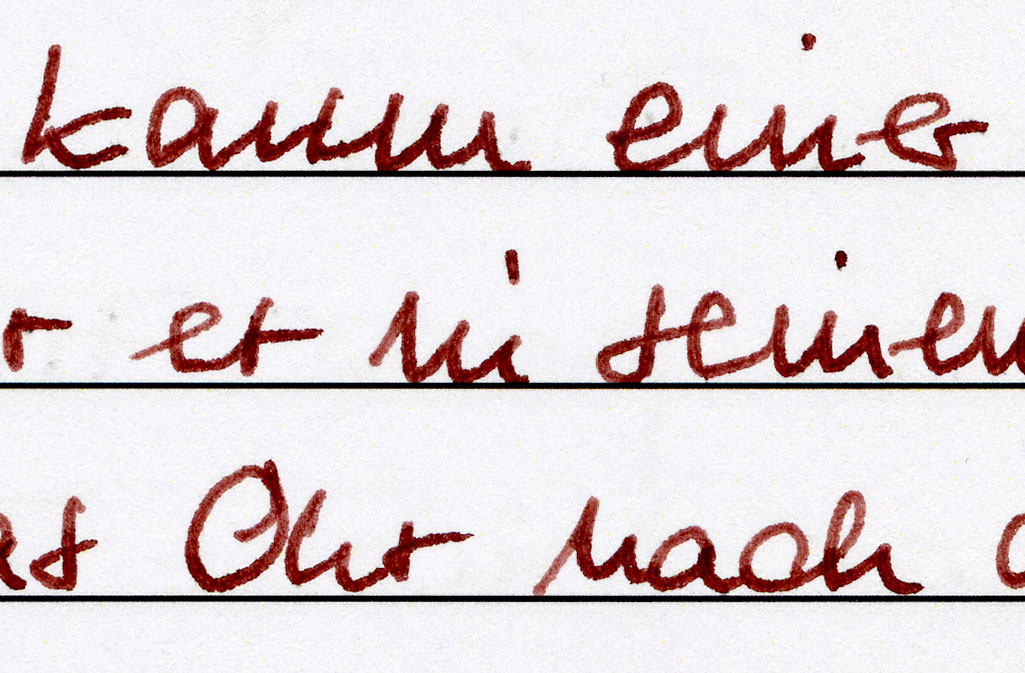 kaum einer
r er in seinen
as Ohr nach